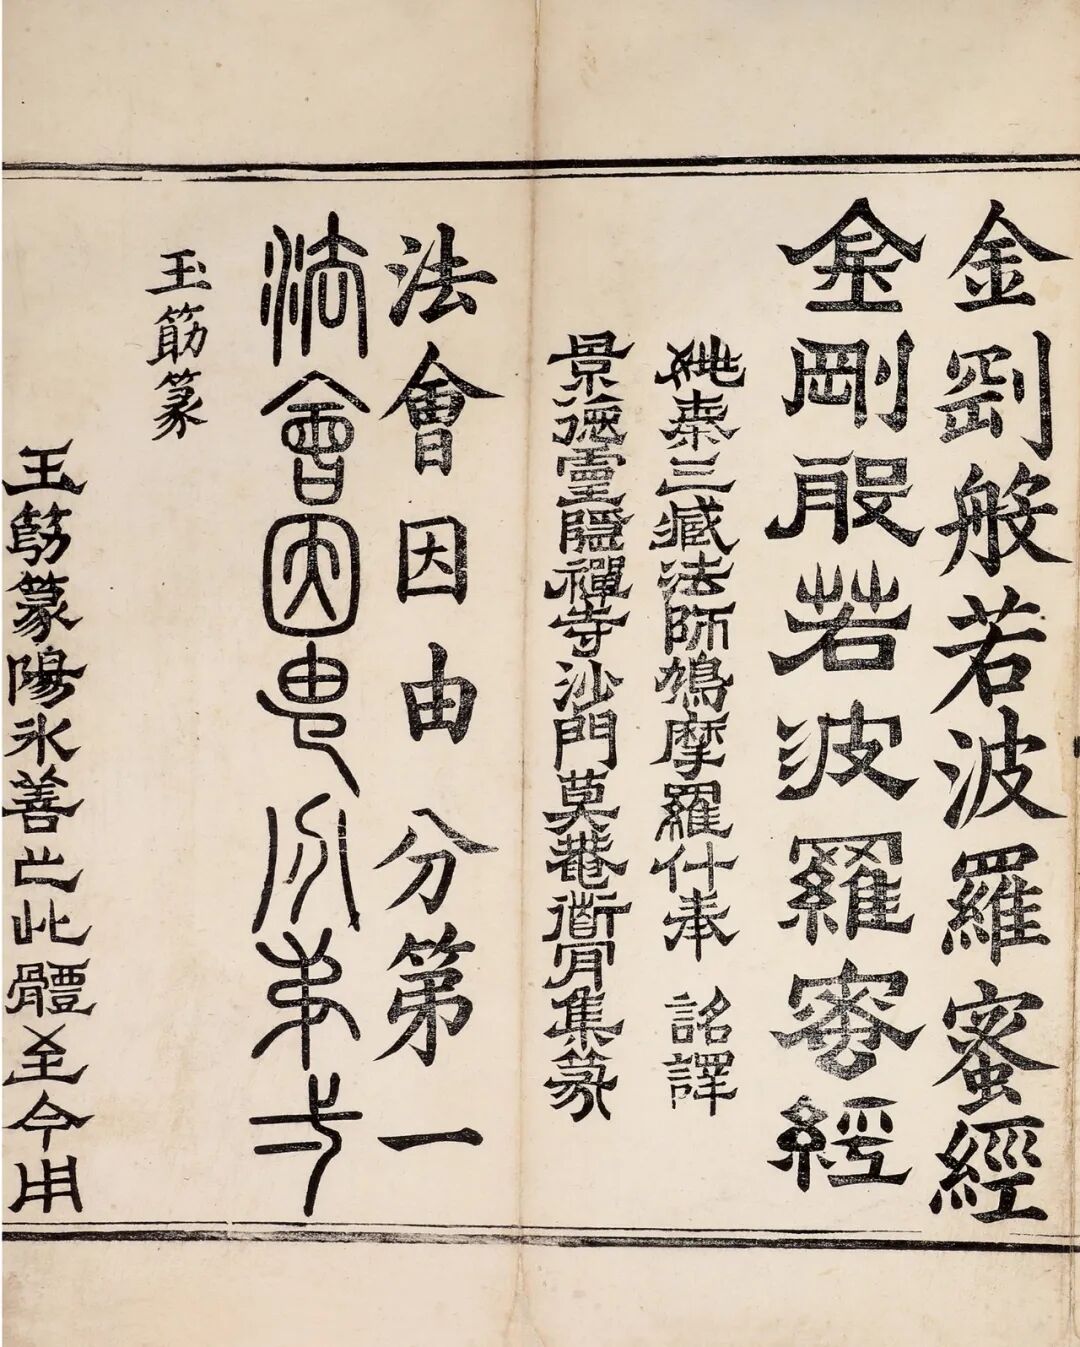 金剛般若波羅蜜經
金剛般若波羅蜜經
姚秦三藏法師鳩摩羅什奉 詔譯
景德靈隱禪寺沙門莫菴道肯集篆
法會因由分第一
法會因由分弟一
玉筯篆
玉筯篆陽氷善此體至今用